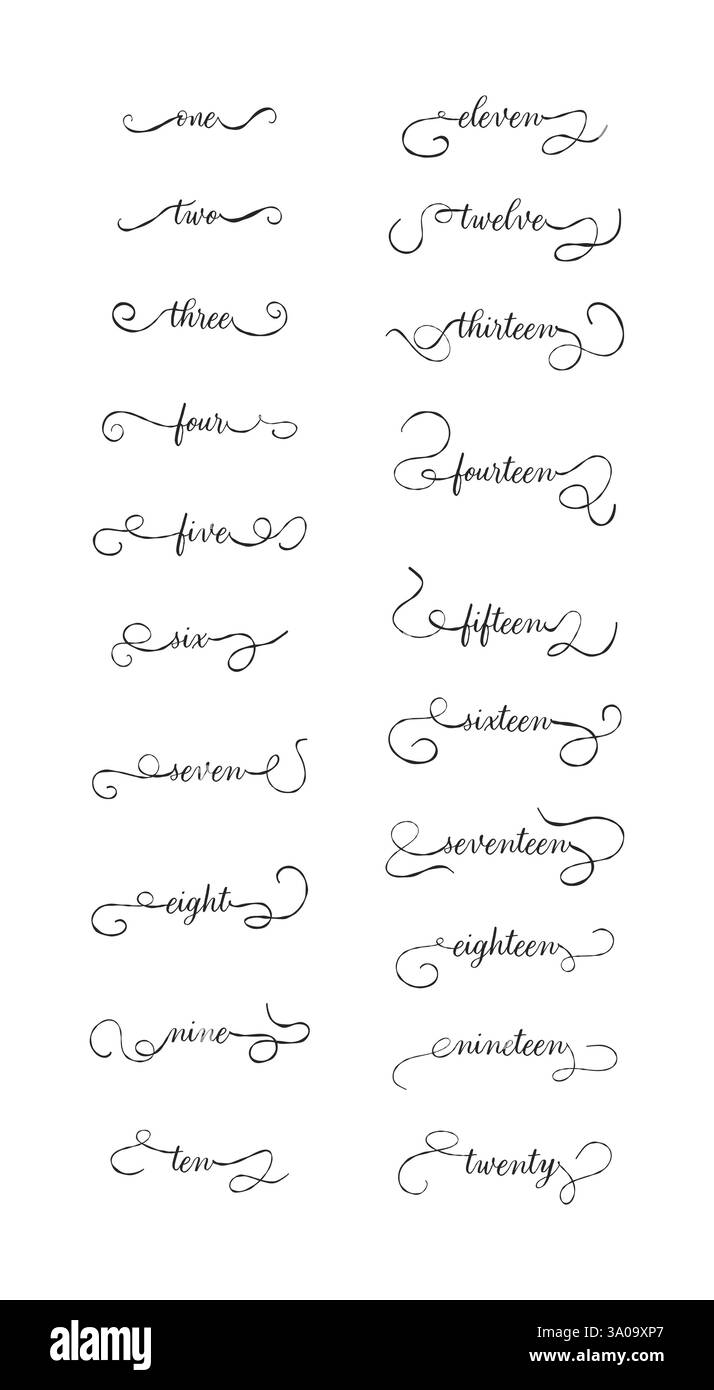 one
two
three
four
five
six
seven
eight
nine
ten
eleven
twelve
thirteen
fourteen
fifteen
sixteen
seventeen
eighteen
nineteen
twenty
alamy
Image ID: 3A09XP7
www.alamy.com